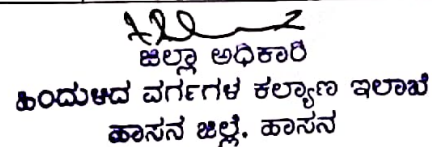 ಜಿಲ್ಲಾ ಅಧಿಕಾರಿ
ಹಿಂದುಳಿದ ವರ್ಗಗಳ ಕಲ್ಯಾಣ ಇಲಾಖೆ
ಹಾಸನ ಜಿಲ್ಲೆ. ಹಾಸನ